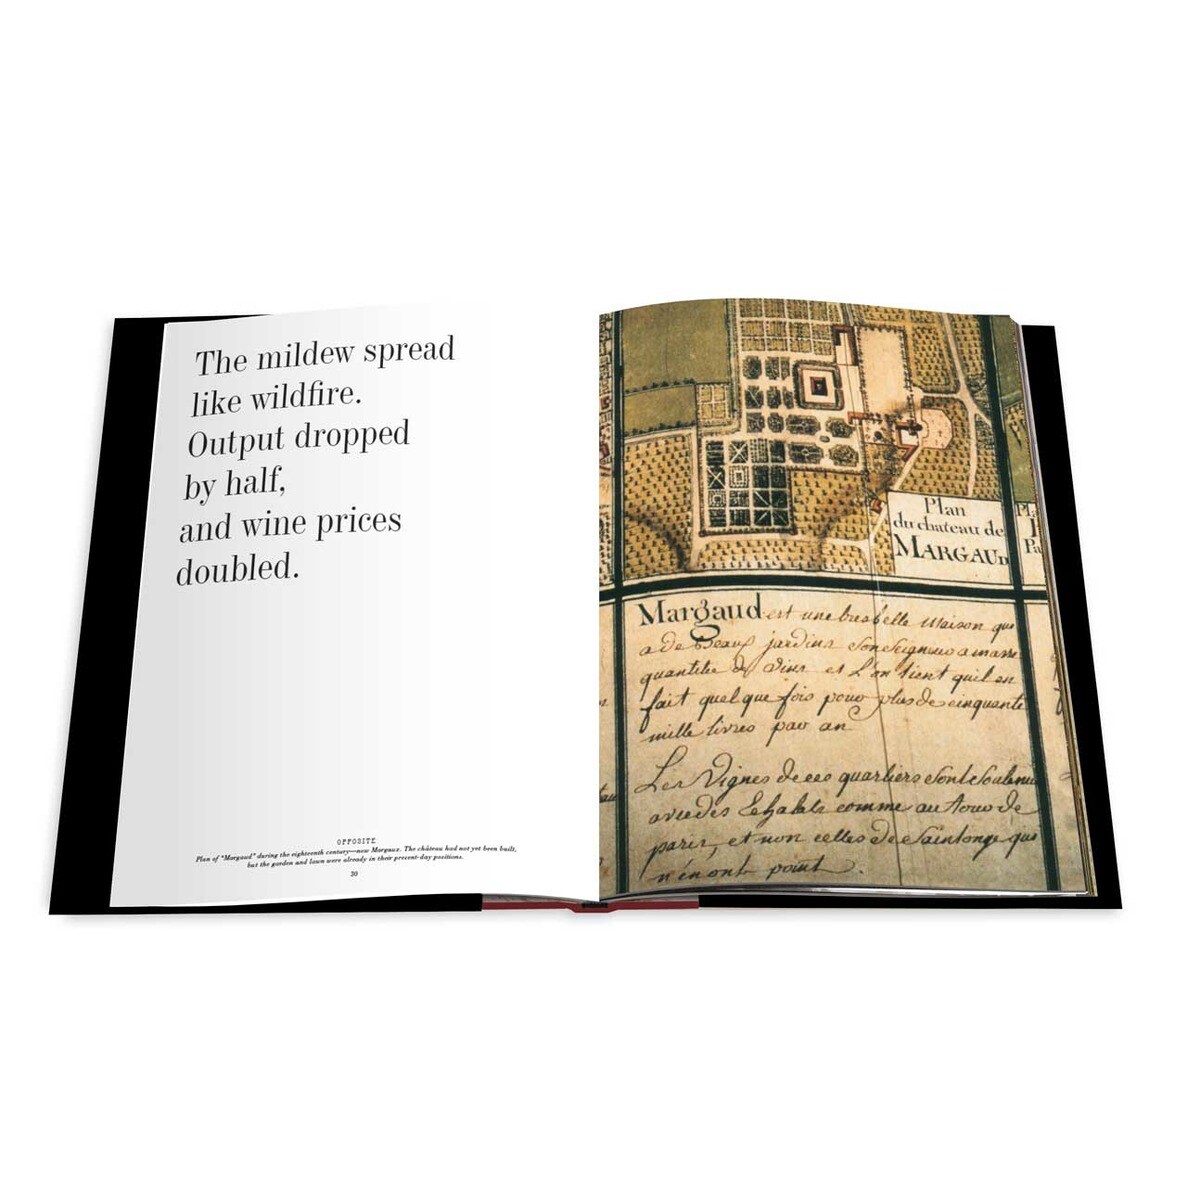 The mildew spread
like wildfire.
Output dropped
by half,
and wine prices
doubled.
OPPOSITE
Plan of "Margaud" during the eighteenth century—now Margaux. The château had not yet been built,
but the garden and lawn were already in their present-day positions.
30
Plan
du chateau de
MARGAUD
Margaud est une tres belle Maison qui
a de Beaux jardins son Seigneur amasse
quantité de Vins et L'on tient quil en
fait quelque fois pour plus de cinquante
mille livres par an
Les Vignes de ces quartiers sont soutenu
avec des Echalats comme au Tour de
paris, et non celles de Saintonge qui
n'en ont point.